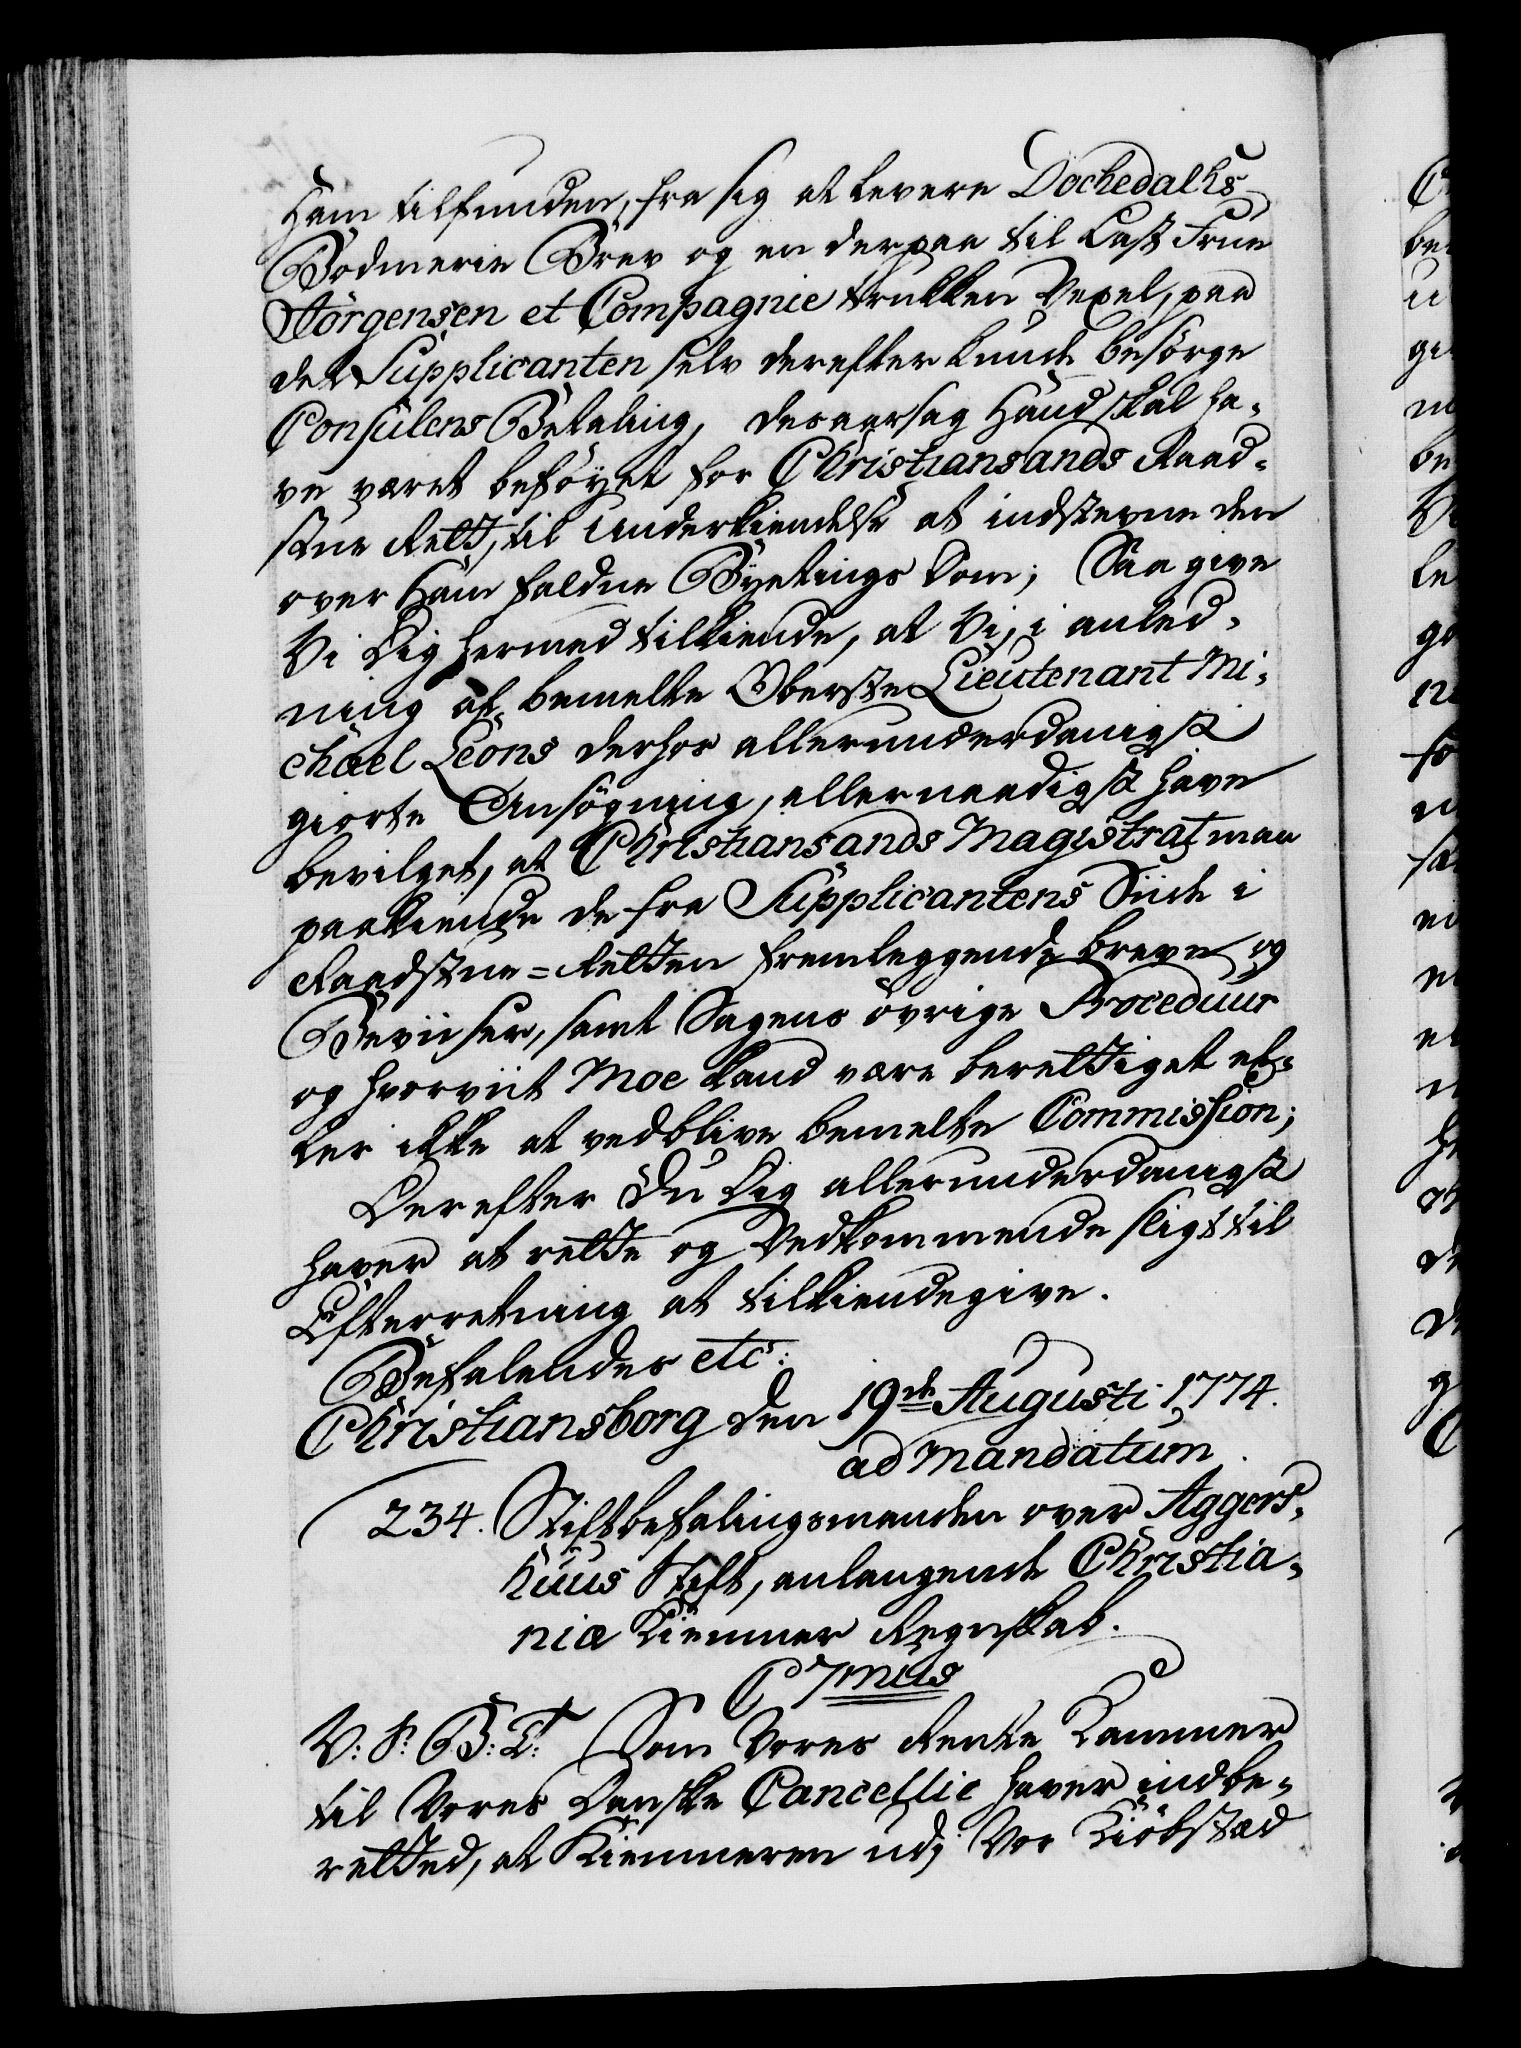 Ham tilfunden, fra sig at levere Dochedalhs
Bodmerie Brev og en derpaa til Last Frue
Jörgensen et Compagnie trukken Vexel, paa
det Supplicanten selv derefter kunde besörge
Consulens Betaling, desaarsag Hand skal ha-
ve været beföyet for Christiansands Raad-
stue Rett, til Underkiendelse at indstevne den
over Ham faldne Byetings Dom; Saa give
Vi Dig hermed tilkiende, at Vi, i anled-
ning af bemelte Oberste Lieutenant Mi-
chael Leons derhos allerunderdanigst
giorte Ansögning, allernaadigst have
bevilget, at Christiansands Magistrat maa
paakiende de fra Supplicantens Siide i
Raadstue=Retten fremleggende breve og
Beviiser, samt Sagens övrige Proceduur
og hvorviit Moe kand være berettiget el-
ler ikke at vedblive bemelte Commission;
Derefter Du Dig allerunderdanigst
haver at rette og Vedkommende sligt til
Efterretning at tilkiendegive.
Befalendes etc:
Christiansborg den 19de Augusti 1774.
ad Mandatum.
234. Stiftbefalingsmanden over Aggers-
huus Stift, anlangende Christia-
niæ Kiemner Regnskab.
C 7mus
V: S: G: B: T: Som Vores Rente Kammer
til Vores Danske Cancellie haver indbe-
retted, at Kiemneren udj Vor Kiöbstæd